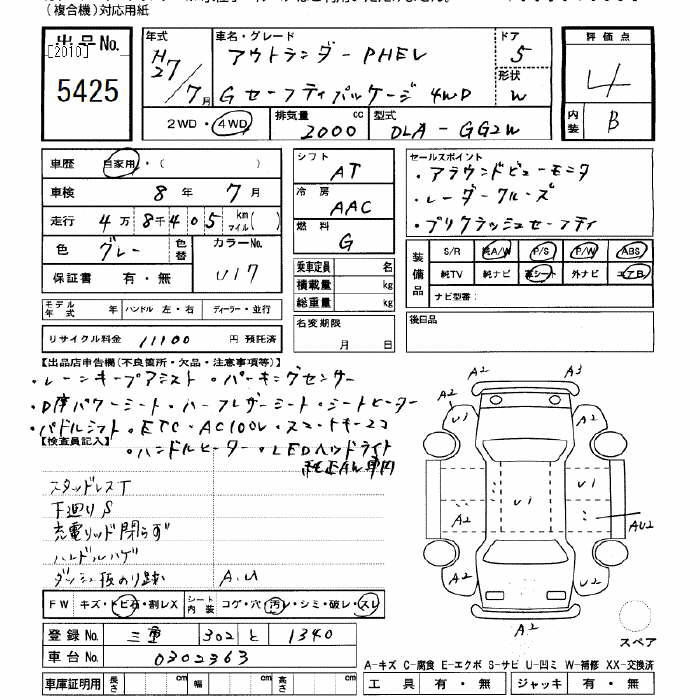 (複合機)対応用紙
出品No.
[2010]
5425
年式
H27/7月
車名・グレード
アウトランダーPHEV
Gセーフティパッケージ 4WD
ドア
5
形状
W
評価点
4
内装
B
2WD・4WD
排気量
2000
cc
型式
DLA-GG2W
車歴
自家用・( )
車検
8年 7月
走行
4万8千405km マイル( )
色
グレー
色替
カラーNo.
U17
保証書
有・無
モデル年式
年
ハンドル 左・右
ディーラー・並行
リサイクル料金
11100
円 預託済
シフト
AT
冷房
AAC
燃料
G
乗車定員
名
積載量
kg
総重量
kg
名変期限
月 日
セールスポイント
・アラウンドビューモニタ
・レーダークルーズ
・プリクラッシュセーフティ
装備品
S/R
純A/W
P/S
P/W
ABS
純TV
純ナビ
革シート
外ナビ
エアB
ナビ型番:
後日品
【出品店申告欄(不良箇所・欠品・注意事項等)】
・レーンキープアシスト・パーキングセンサー
・D席パワーシート・ハーフレザーシート・シートヒーター
・パドルシフト・ETC・AC100V・スマートキー2コ
【検査員記入】
・ハンドルヒーター・LEDヘッドライト
スタッドレスT
下廻りS
充電リッド閉らず
ハンドルハゲ
ダッシュ板のり跡
A.U
FW
キズ・トビ石・割レX
シート内装
コゲ・穴・汚レ・シミ・破レ・スレ
登録No.
三重
302
と
1340
車台No.
0302363
車庫証明用
長さ
cm
幅
cm
高さ
cm
A2
A3
A2
U1
A2
A2
U1
U1
AU2
A2
U2
A2
スペア
A-キズ C-腐食 E-エクボ S-サビ U-凹ミ W-補修 XX-交換済
工具
有・無
ジャッキ
有・無